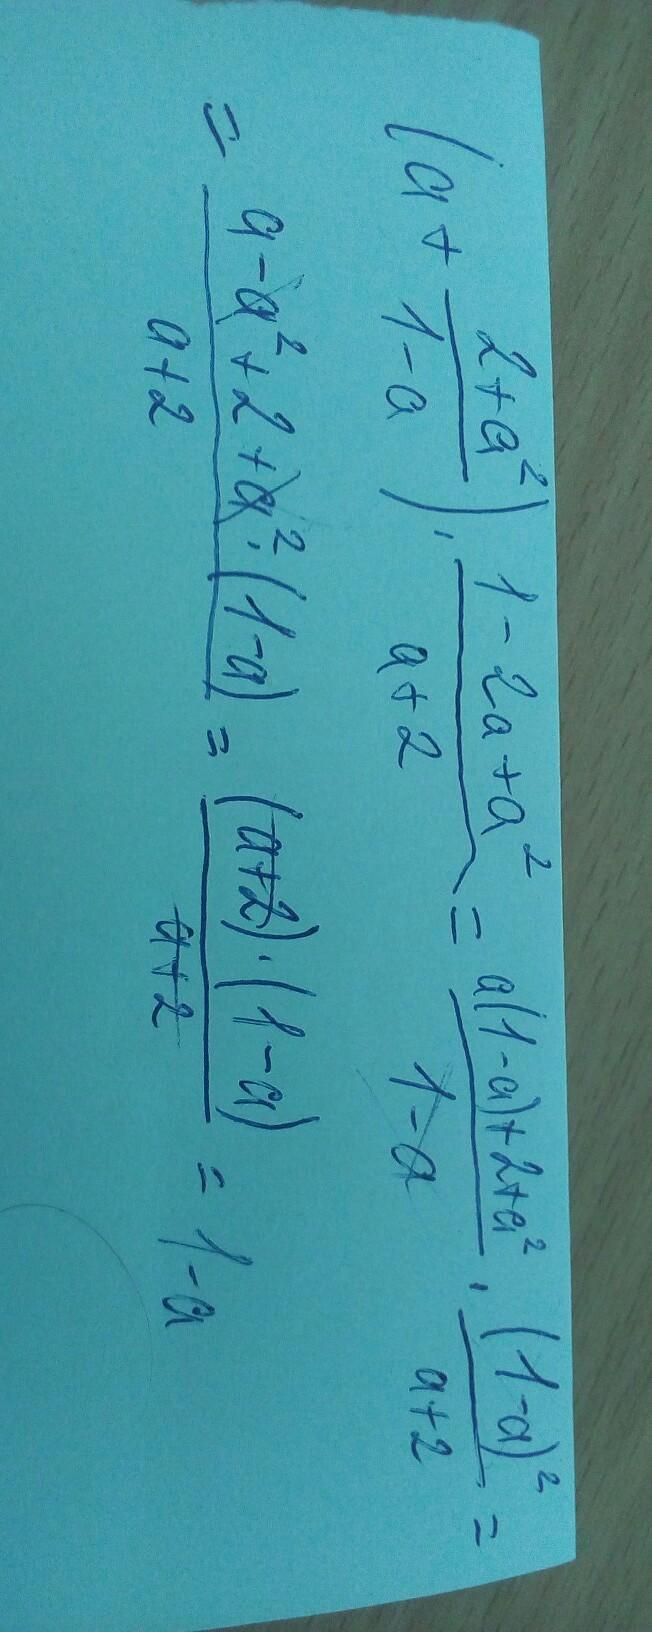 (a + \frac{2+a^2}{1-a}) \cdot \frac{1-2a+a^2}{a+2} = \frac{a(1-a)+2+a^2}{1-a} \cdot \frac{(1-a)^2}{a+2} =
= \frac{a-a^2+2+a^2 \cdot (1-a)}{a+2} = \frac{(a+2) \cdot (1-a)}{a+2} = 1-a